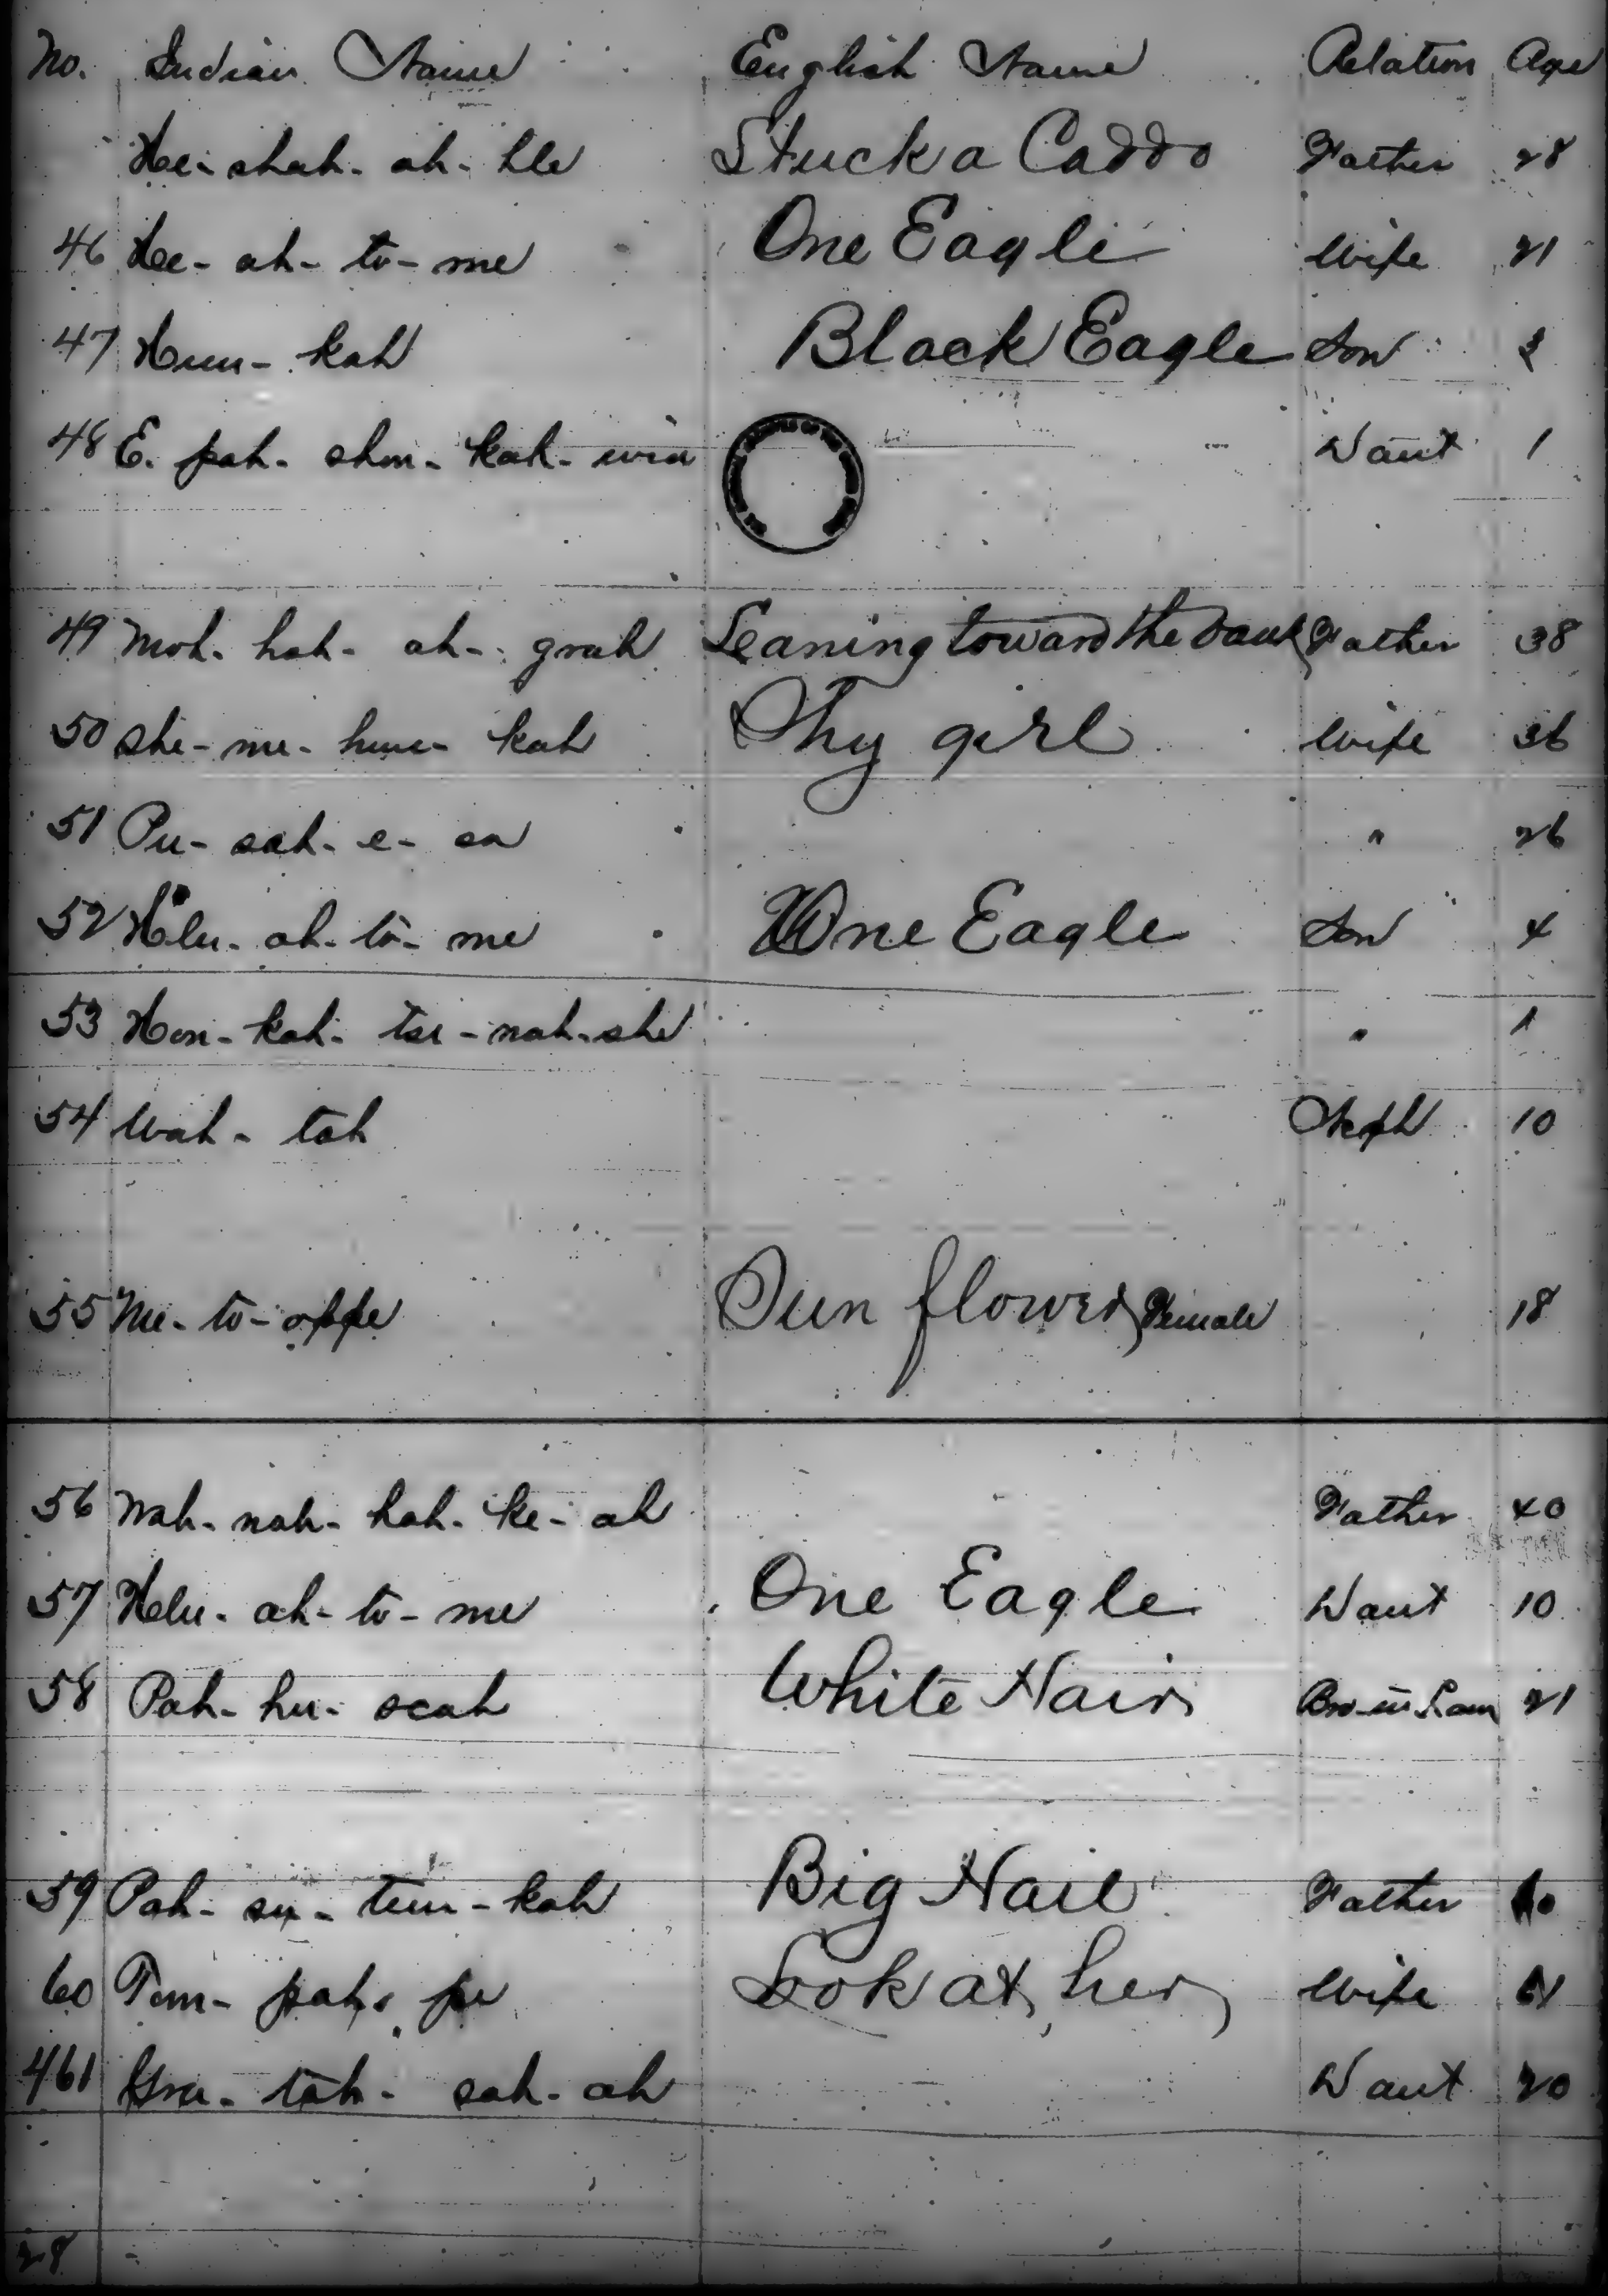 No. Indian Name English Name Relation Age
He-shah-ah-hle Stuck a Caddo Father 28
46 Hee-ah-to-me One Eagle Wife 21
47 Hun-kah Black Eagle Son 2
48 E-pah-shon-kah-win Daut 1
49 Moh-hah-ah-grah Leaning toward the bank Father 38
50 She-me-hun-kah Shy girl Wife 36
51 Pu-sah-e-sa " 26
52 Hlu-ah-to-me One Eagle Son 4
53 Hon-kah-tse-nah-she " 1
54 Wah-tah Neph 10
55 Me-to-oppe Sun flower Female 18
56 Wah-nah-hah-ke-ah Father 40
57 Hlu-ah-to-me One Eagle Daut 10
58 Pah-hu-scah White Hair Bro-in Law 21
59 Pah-su-tun-kah Big Nail Father
60 Tom-pah-pe Look at her Wife
461 Gra-tah-sah-ah Daut 20
28